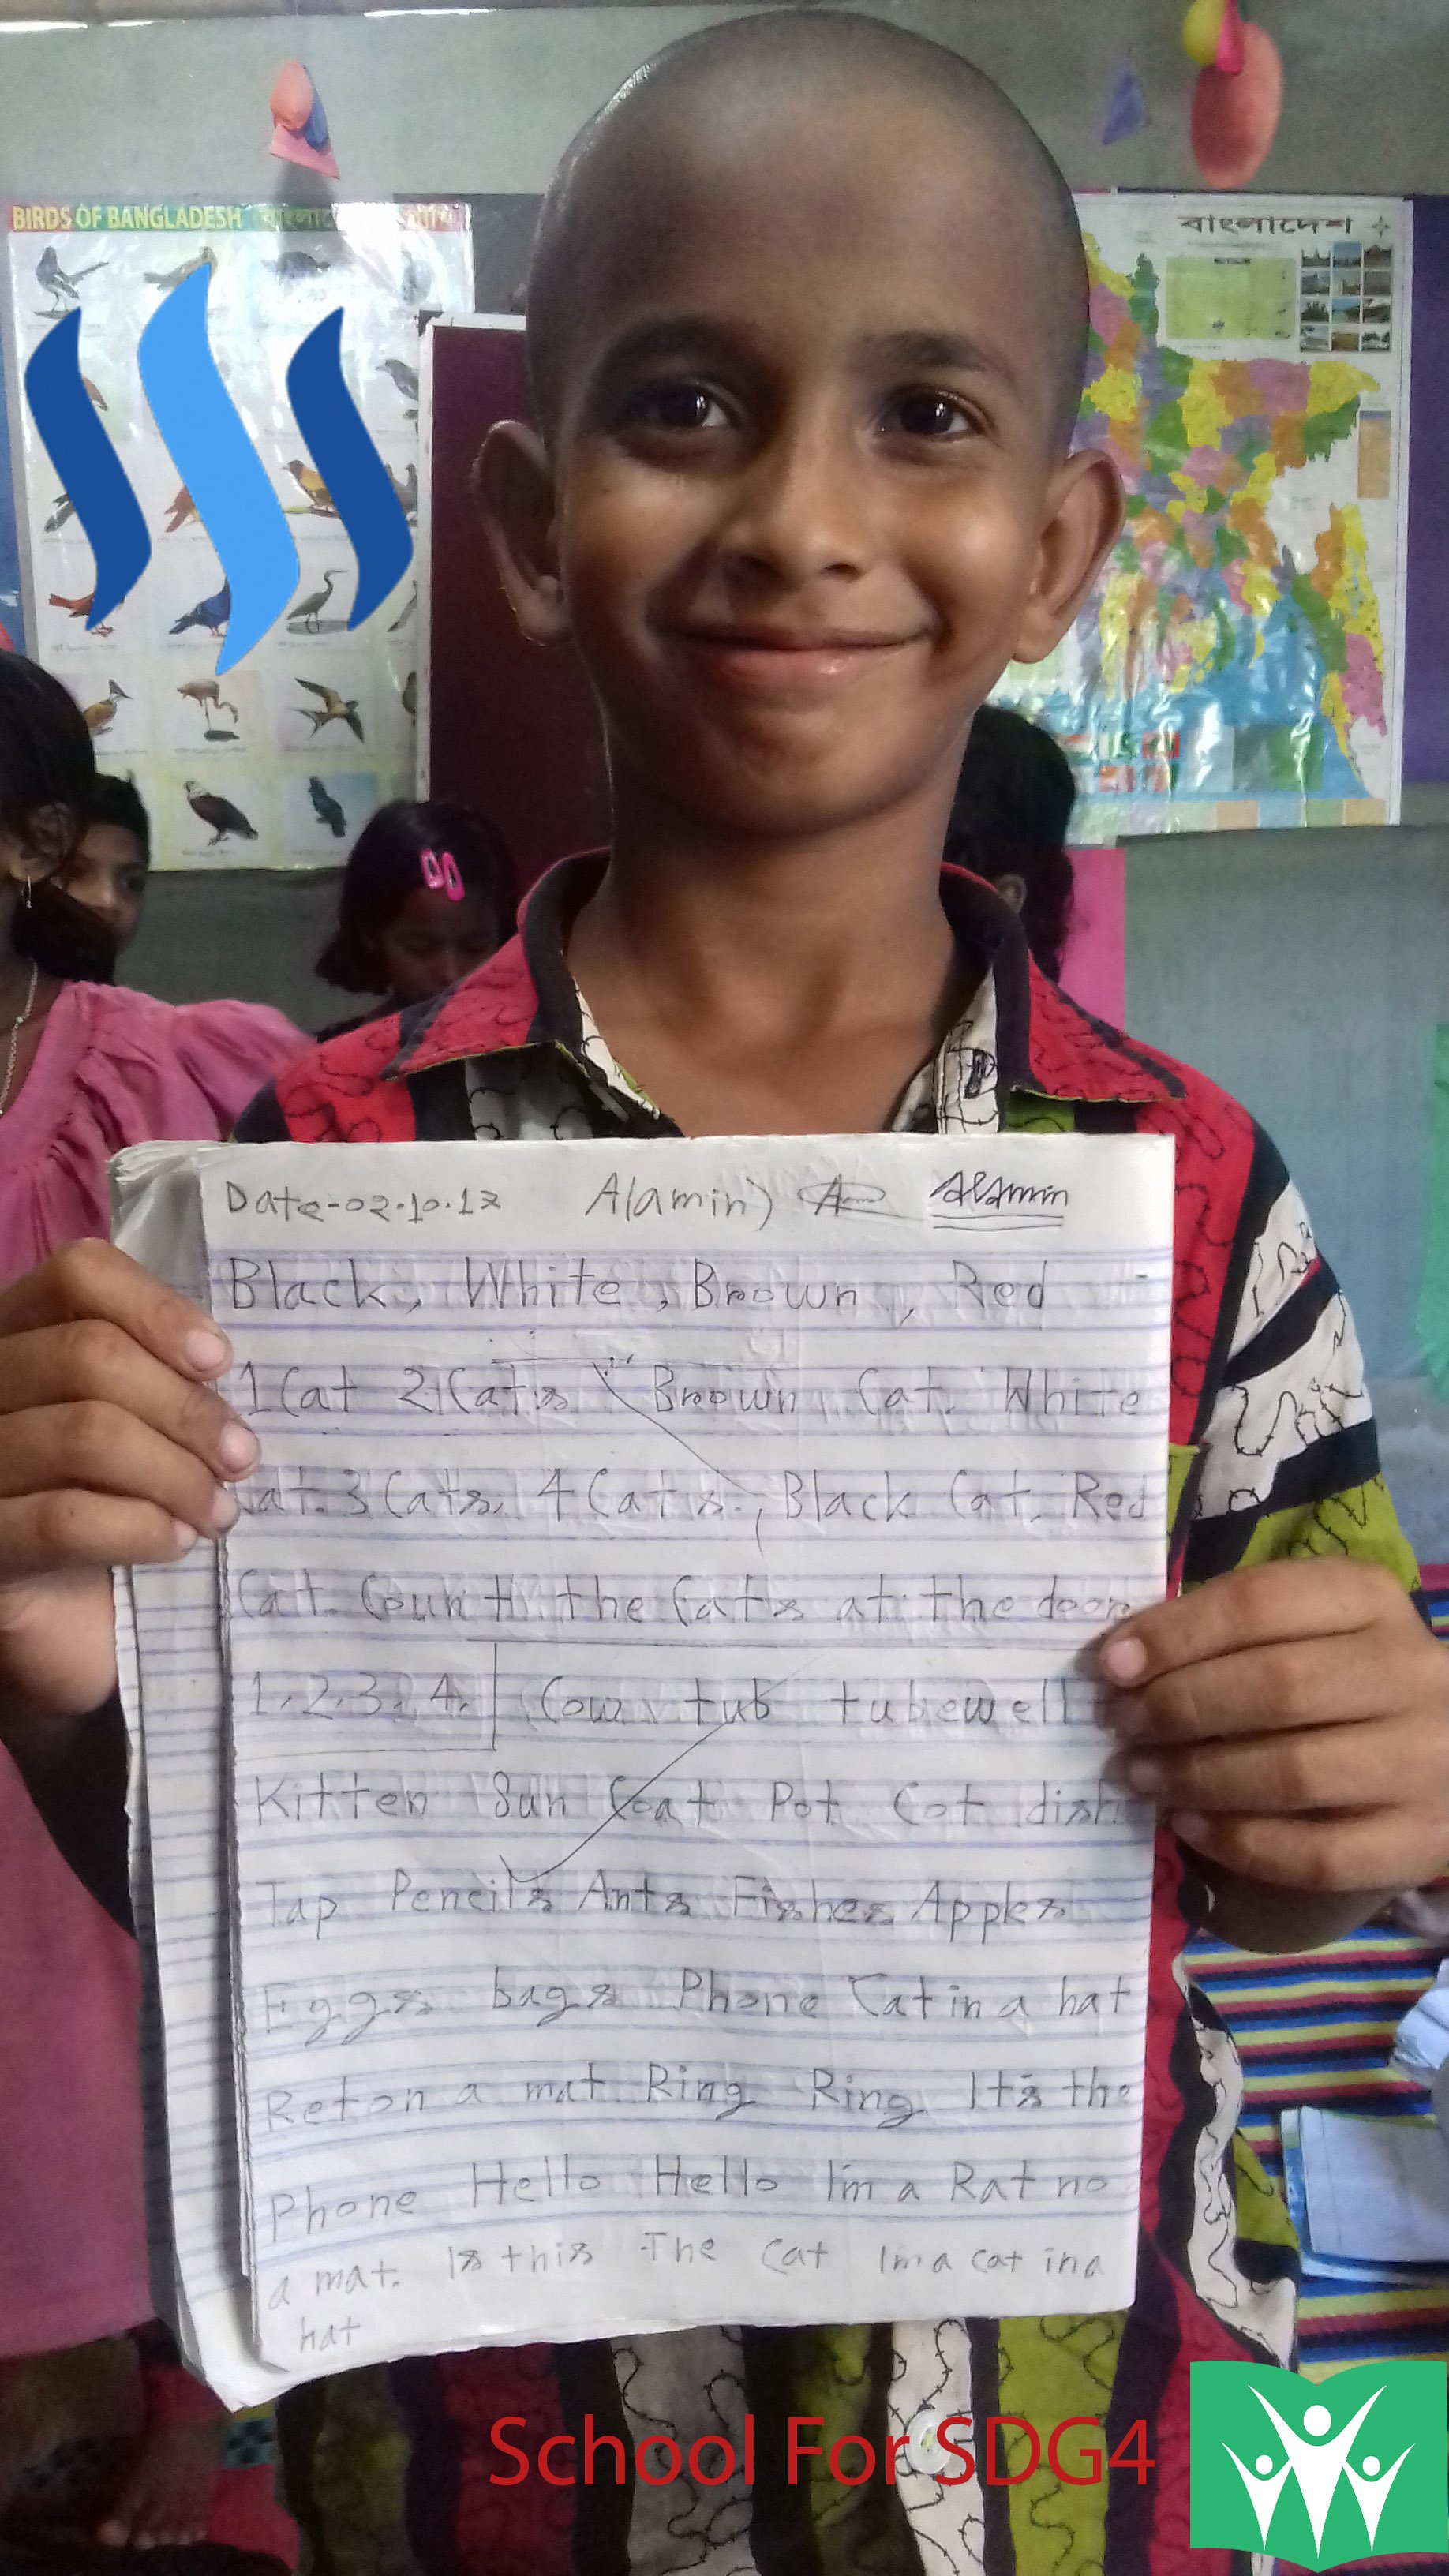 BIRDS OF BANGLADESH
বাংলাদেশ
Date-02.10.17 Alamin) Alamin
Black, White, Brown, Red
1 Cat 2 Cats Brown Cat. White
Cat. 3 Cats, 4 Cats., Black Cat, Red
Cat. Count the Cats at the door
1.2.3.4. Cow tub tubewell
Kitten Sun Coat Pot Cot dish
Tap Pencils Ants Fishes Apples
Eggs bags Phone Cat in a hat
Ret on a mat Ring Ring It's the
Phone Hello Hello I'm a Rat no
a mat. Is this The Cat I'm a cat in a
hat
School For SDG4